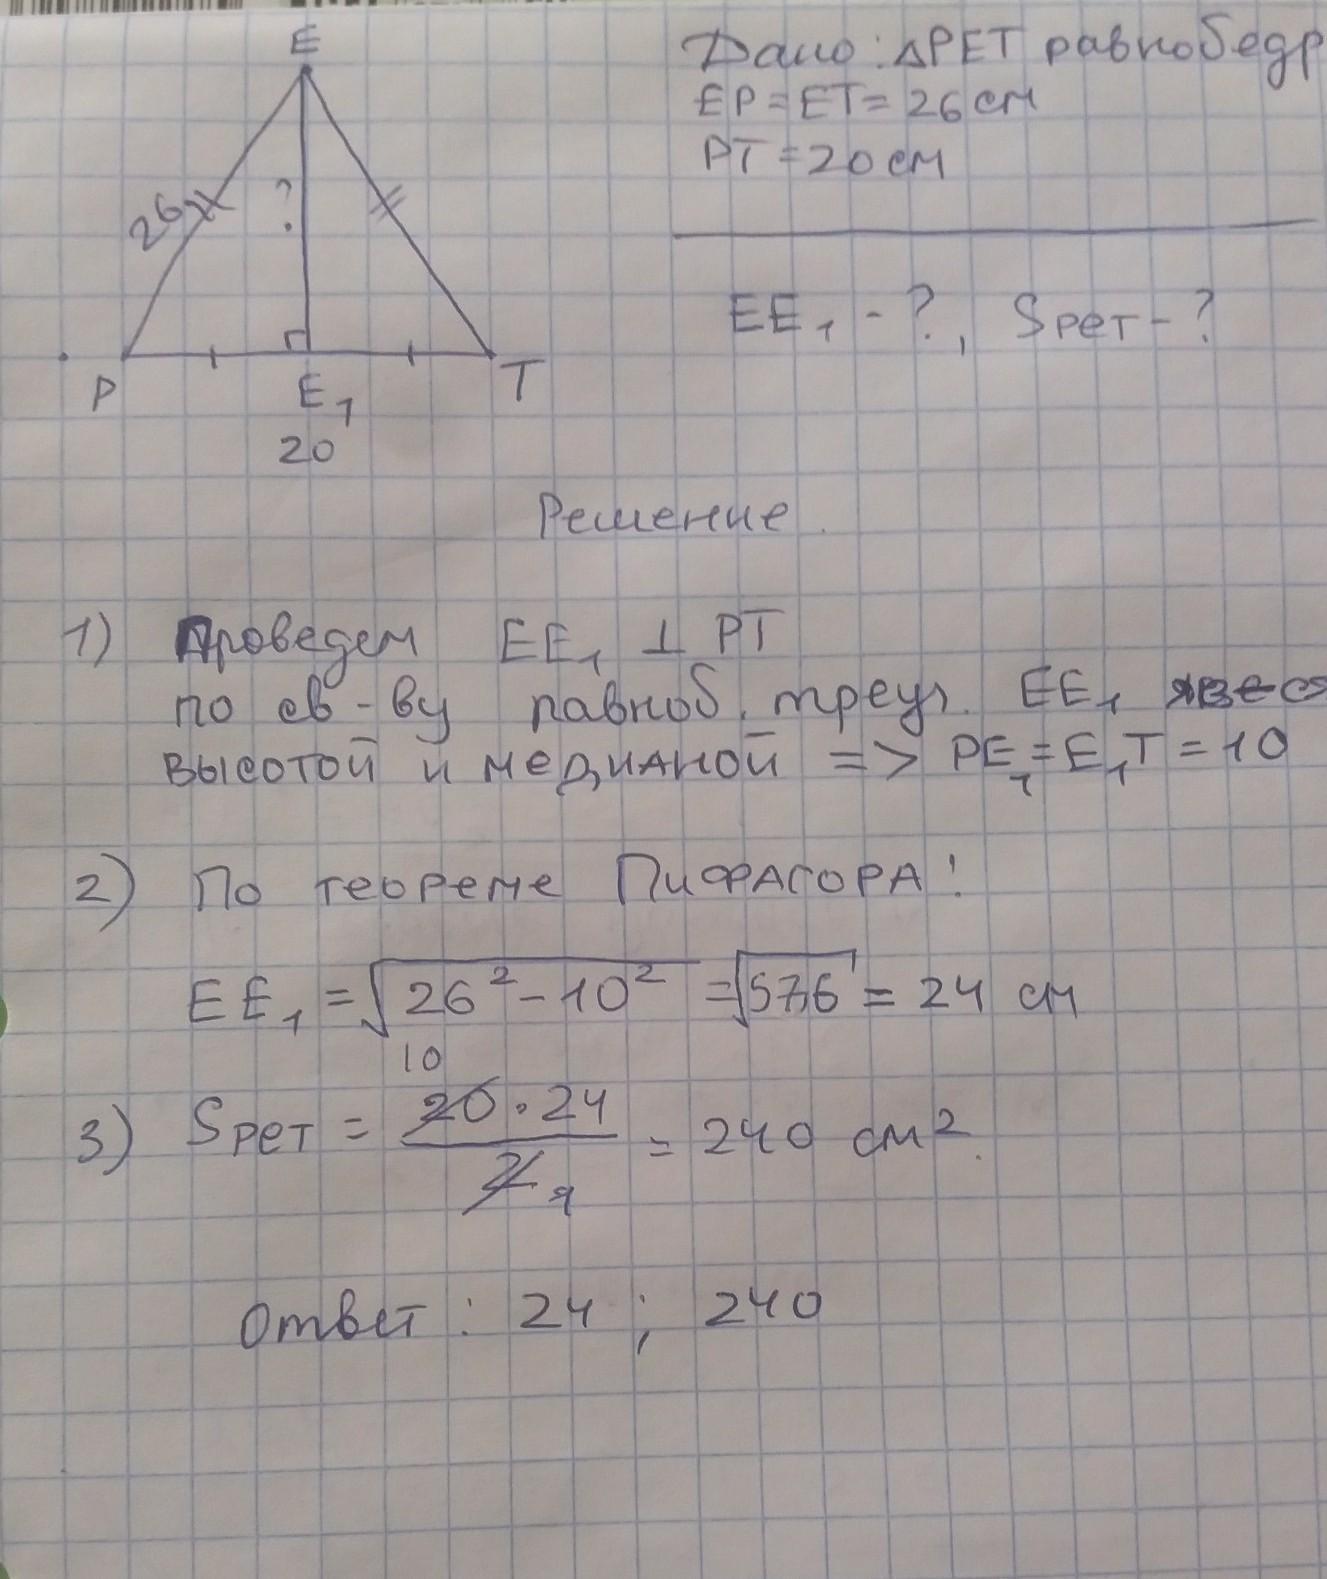 E
26
?
P
E₁
T
20
Дано: ΔPET равнобедр
EP = ET = 26 см
PT = 20 см
EE₁ - ?, Sрет - ?
Решение.
1) Проведем EE₁ ⊥ PT
по св-ву равноб. треуг. EE₁
высотой и медианой => PE₁ = E₁T = 10
2) По теореме ПИФАГОРА!
EE₁ = √26² - 10² = √576 = 24 см
10
3) Sрет = 20 · 24 / 2 1 = 240 см².
Ответ: 24 ; 240